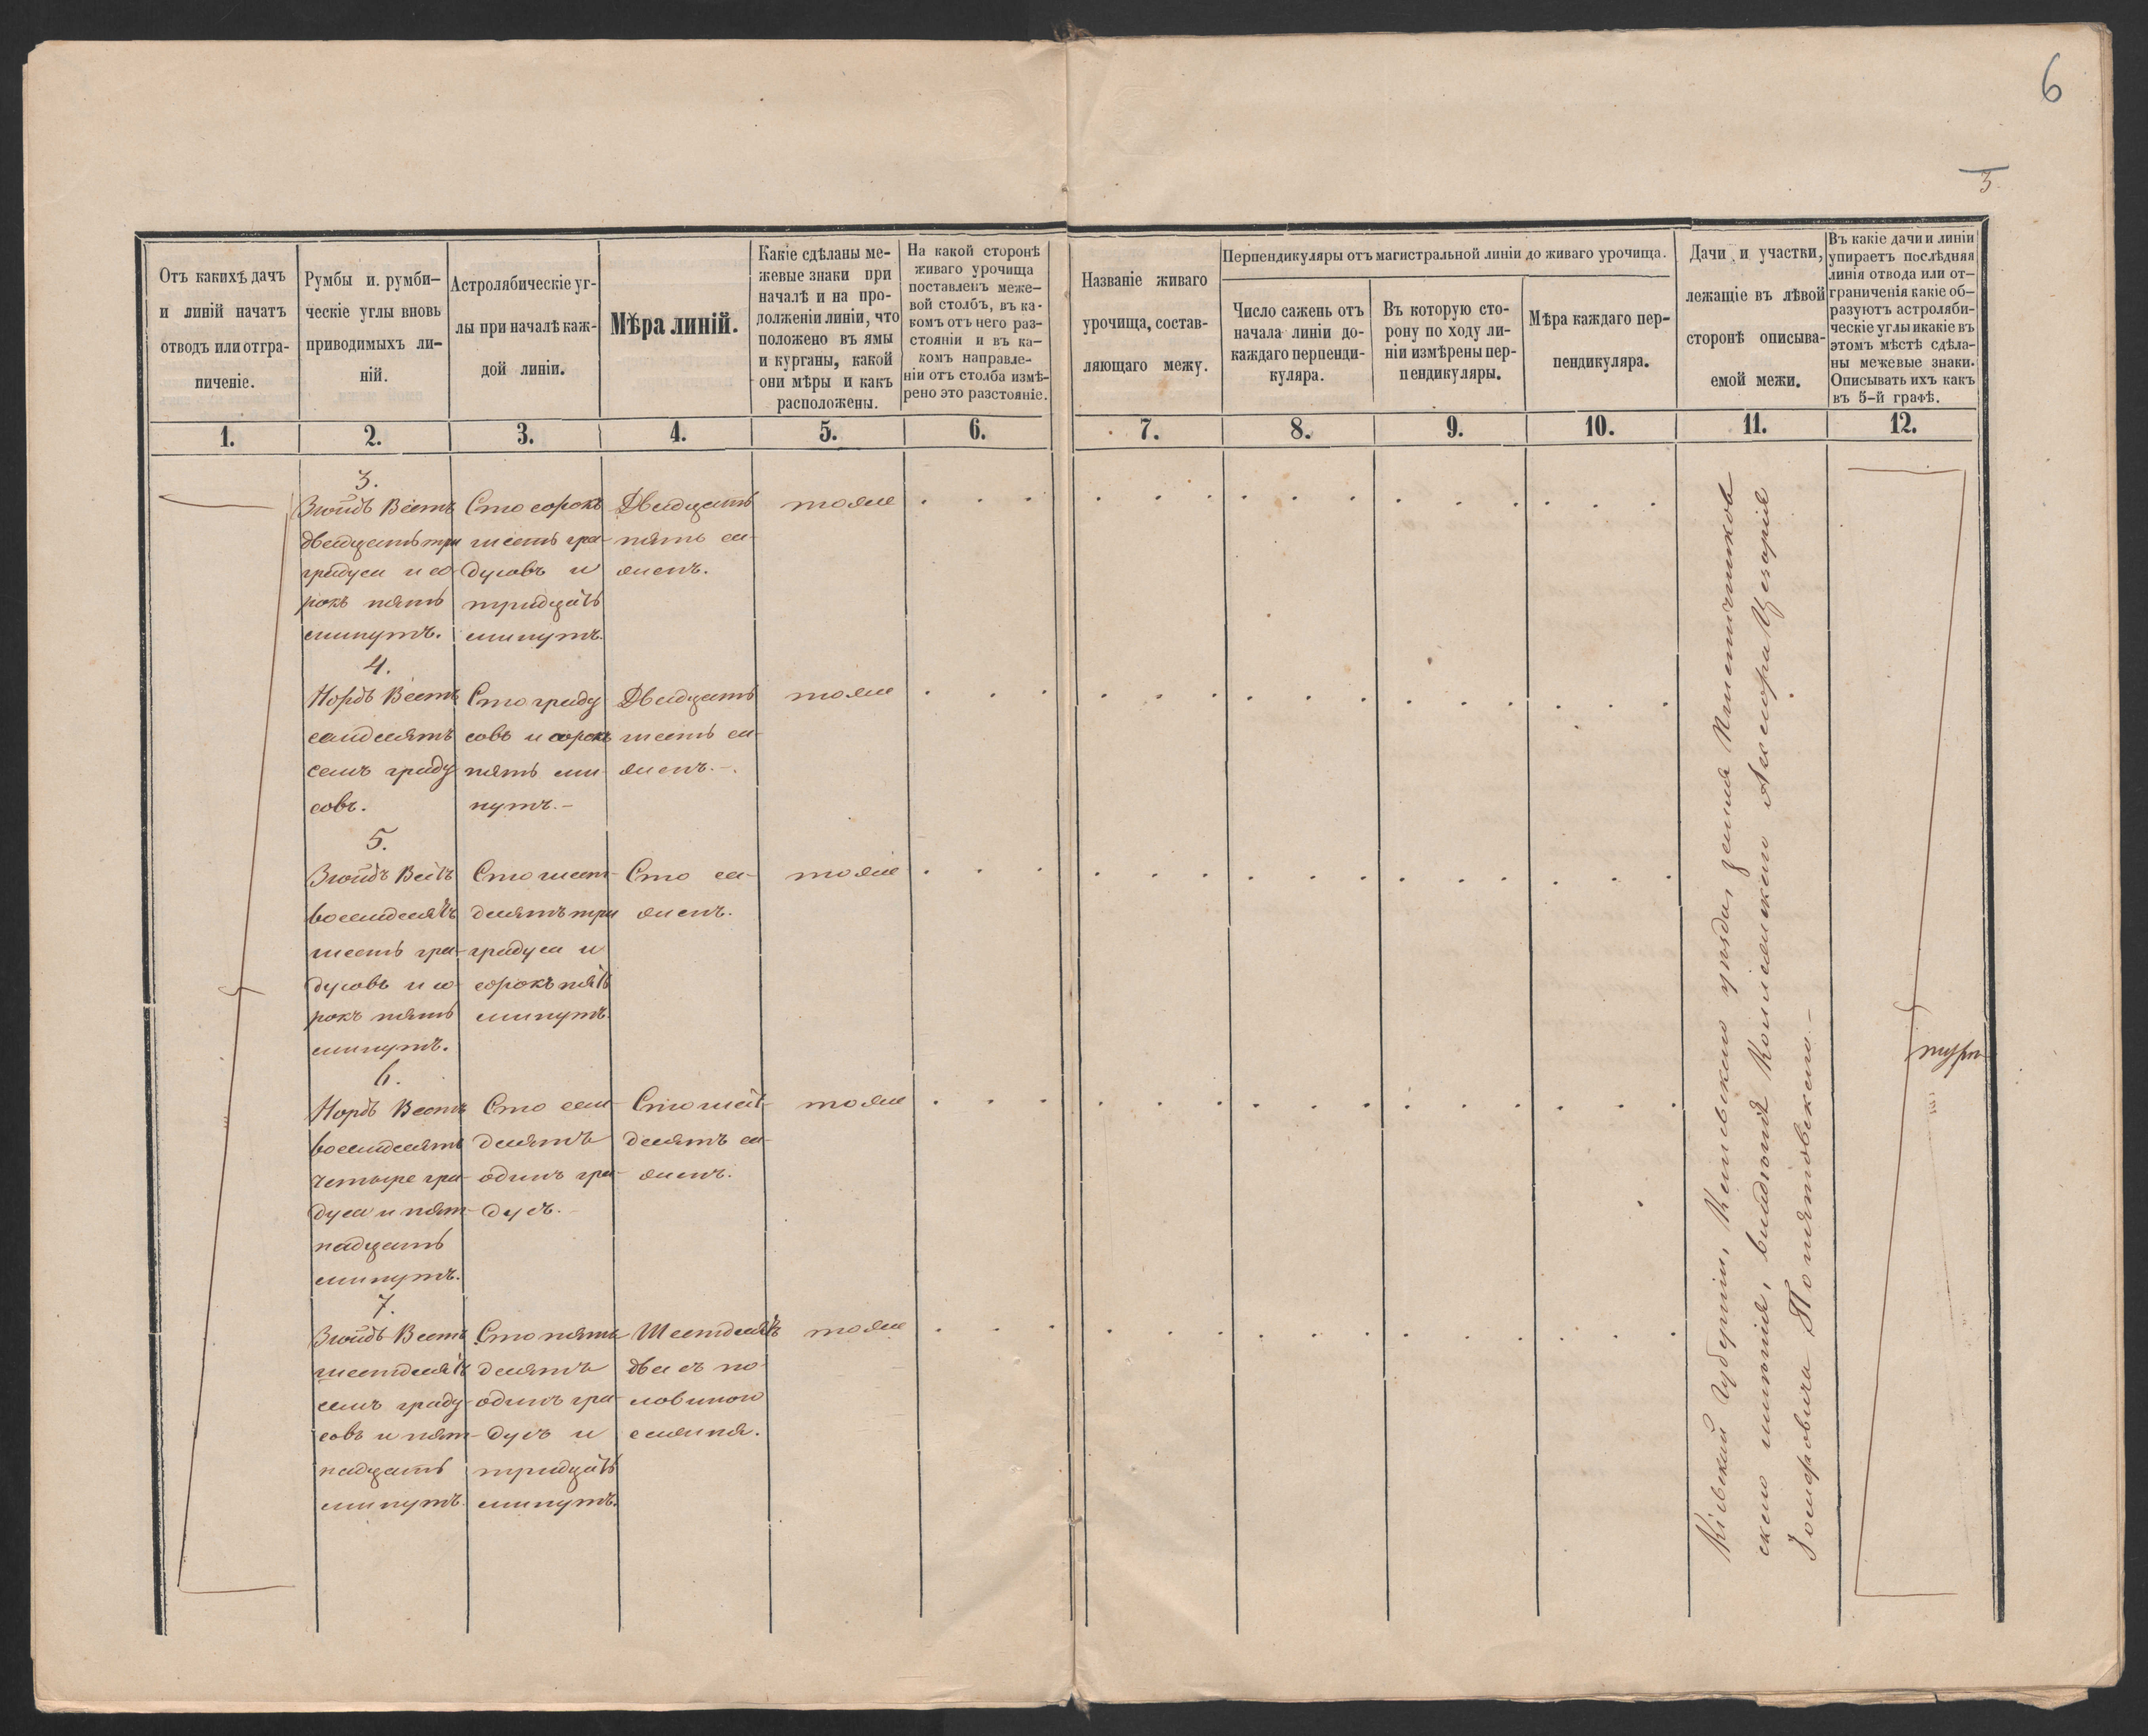 6
3
Отъ какихъ дачъ
и линій начатъ
отводъ или отгра-
ниченіе.
Румбы и. румби-
ческіе углы вновь
приводимыхъ ли-
ній.
Астролябическіе уг-
лы при началѣ каж-
дой линіи.
Мѣра линій.
Какіе сдѣланы ме-
жевые знаки при
началѣ и на про-
долженіи линіи, что
положено въ ямы
и курганы, какой
они мѣры и какъ
расположены.
На какой сторонѣ
живаго урочища
поставленъ меже-
вой столбъ, въ ка-
комъ отъ него раз-
стояніи и въ ка-
комъ направле-
ніи отъ столба измѣ-
рено это разстояніе.
Названіе живаго
урочища, состав-
ляющаго межу.
Перпендикуляры отъ магистральной линіи до живаго урочища.
Число сажень отъ
начала линіи до-
каждаго перпенди-
куляра.
Въ которую сто-
рону по ходу ли-
ніи измѣрены пер-
пендикуляры.
Мѣра каждаго пер-
пендикуляра.
Дачи и участки,
лежащіе въ лѣвой
сторонѣ описыва-
емой межи.
Въ какіе дачи и линіи
упираетъ послѣдняя
линія отвода или от-
граниченія какіе об-
разуютъ астроляби-
ческіе углы и какіе въ
этомъ мѣстѣ сдѣла-
ны межевые знаки.
Описывать ихъ какъ
въ 5-й графѣ.
1. 2. 3. 4. 5. 6. 7. 8. 9. 10. 11. 12.
3.
Зюйдъ Вестъ
двадцать три
градуса и со
рокъ пять
минутъ.
Сто сорокъ
шесть гра-
дусовъ и
тридцать
минутъ.
Двадцать
пять са-
женъ.
тоже
4.
Нордъ Вестъ
семдесятъ
семъ граду
совъ.
Сто граду
совъ и сорокъ
пять ми-
нутъ.-
Двадцать
шесть са-
женъ.-.
тоже
5.
Зюйдъ Вестъ
восемдесятъ
шесть гра-
дусовъ и со-
рокъ пять
минутъ.
Сто шест-
десятъ три
градуса и
сорокъ пять
минутъ.
Сто са-
женъ.
тоже
6.
Нордъ Вестъ
восемдесятъ
четыре гра-
дуса и пят-
надцать
минутъ.
Сто сем-
десятъ
одинъ гра-
дусъ.
Сто шест-
десятъ са-
женъ.
тоже
7.
Зюйдъ Вестъ
шестдесятъ
семъ граду-
совъ и пят-
надцать
минутъ.
Сто пять
десятъ
одинъ гра-
дусъ и
тридцать
минутъ.
Шестдесятъ
два съ по-
ловиною
сажня.
тоже
Кіевской Губерніи, Каневскаго уѣзда, земля
скаго имѣнія, владѣнія Коллежскаго Асессора Цезарія
Понятовскаго.-